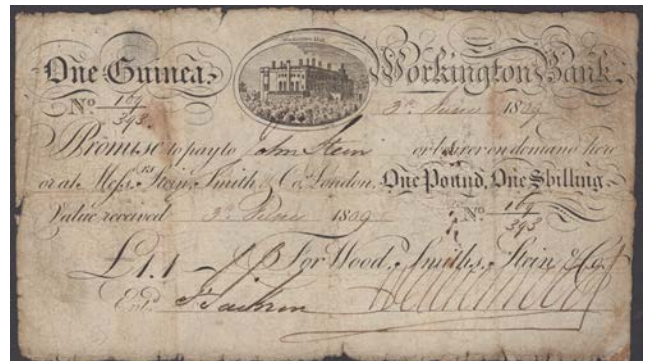 Workington Hall
One Guinea. Workington Bank.
No. 169/393. 3d. June 1809
I Promise to pay to John Stein or bearer on demand here
or at Messrs. Stein, Smith & Co. London, One Pound, One Shilling.
Value received 3d. June 1809 No. 169/393
£1.1 For Wood, Smiths, Stein & Co.
Entd.